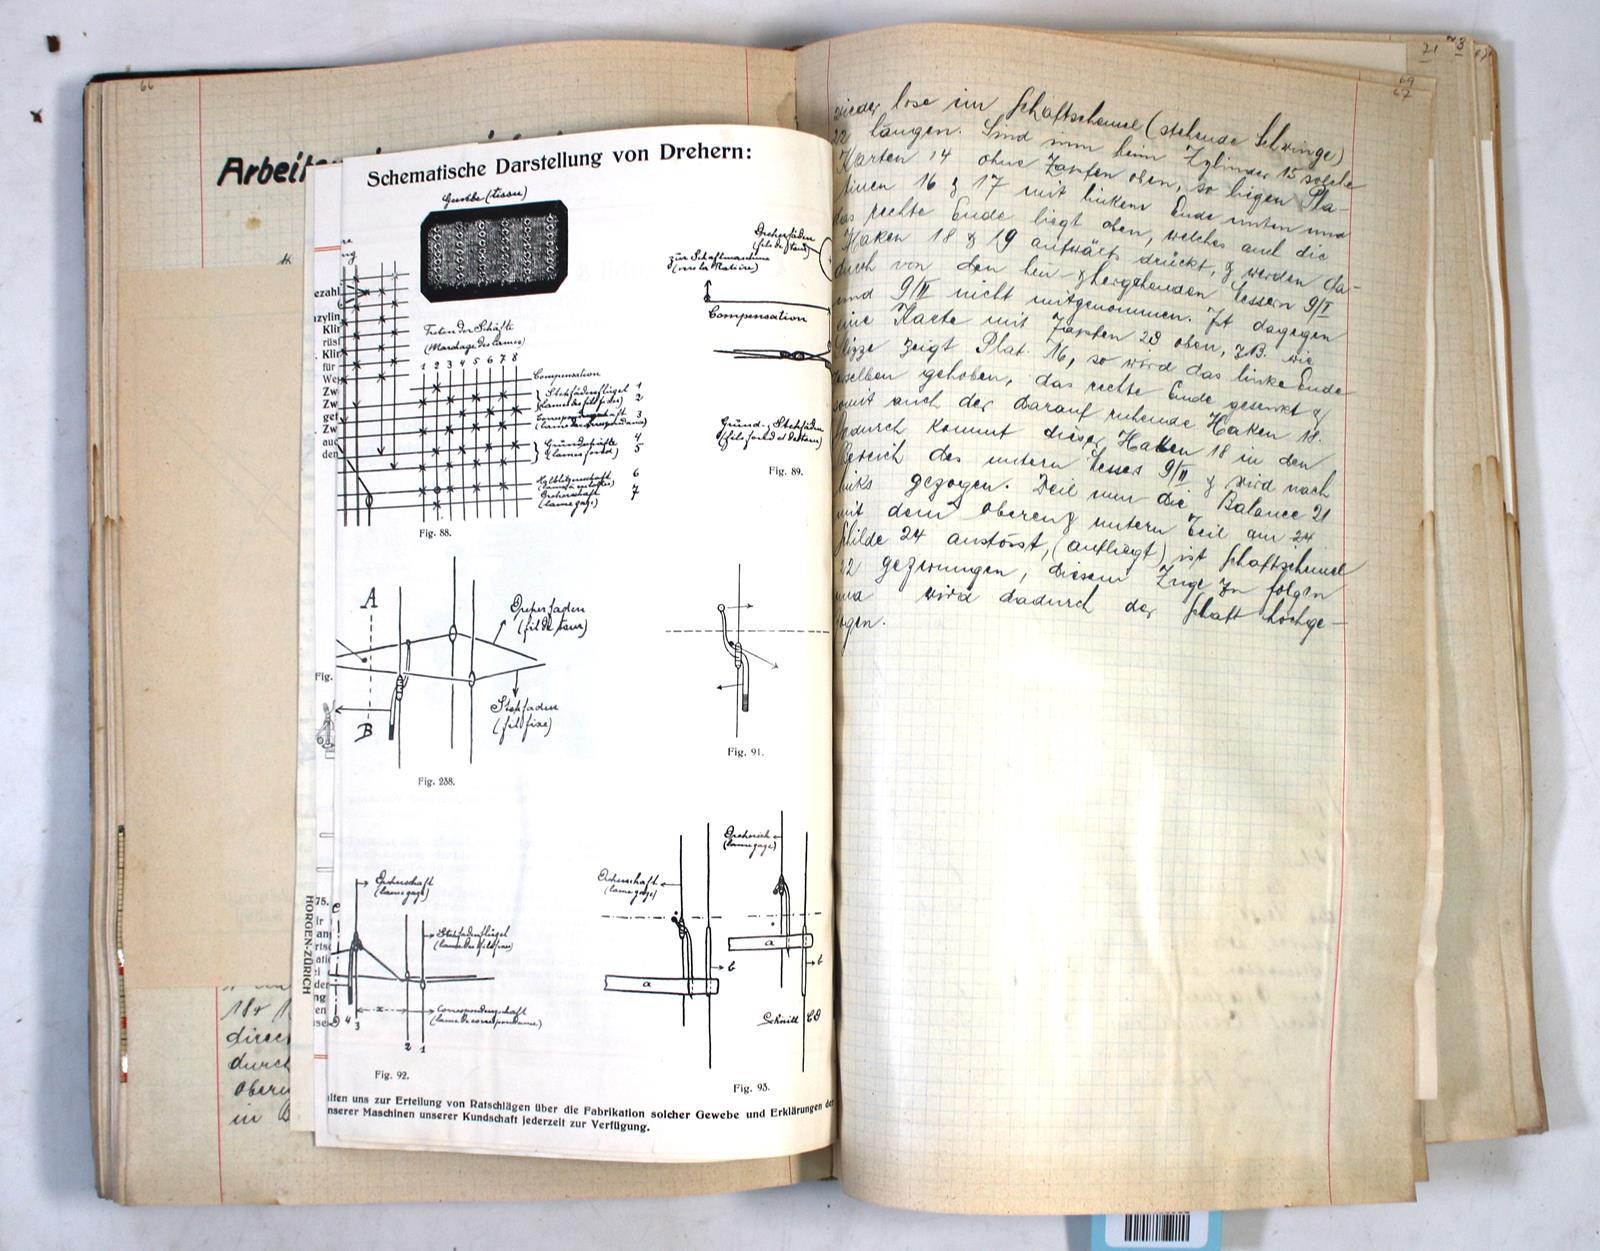 66
Arbeits
Schematische Darstellung von Drehern:
Gewebe (tissu)
Dreherfäden
(fils de tour)
zur Schaftmaschine
(vers la Ratière)
Compensation
Treten der Schäfte
(Marchage des lames)
1 2 3 4 5 6 7 8
Compensation
Stehfädenflügel 1
(lame des fils fixes) 2
3
Grundschäfte 4
(lames fond) 5
6
Dreherschaft 7
(lame gaze)
Grund- & Stehfäden
Fig. 89.
Fig. 88.
ezahl
Klir
rüst
Klir
für
We
Zw
Zw
get
Zw
auc
den
A
Dreherfaden
(fil de tour)
Stehfaden
(fil fixe)
B
Fig.
Fig. 258.
Fig. 91.
Dreherschaft
(lame gaze)
Stehfadenflügel
(lame des fils fixes)
Correspondenzschaft
(lame de correspondance)
x
4 3
2 1
Fig. 92.
Dreherschaft
(lame gaze)
Dreherschaft
(lame gaze)
a
b
a
b
Schnitt CD
Fig. 93.
75.
HORGEN-ZÜRICH
alten uns zur Erteilung von Ratschlägen über die Fabrikation solcher Gewebe und Erklärungen der
nserer Maschinen unserer Kundschaft jederzeit zur Verfügung.
direct
durch
oberen
in
71
69
67
wieder lose im Schaftschemel (stehende Schwinge)
22 hängen. Sind nun beim Zylinder 15 solche
Karten 14 ohne Zapfen oben, so liegen Pla-
tinen 16 & 17 mit linkem Ende unten und
das rechte Ende liegt oben, welches auch die
Haken 18 & 19 aufwärts drückt, & werden da-
durch von den hin- & hergehenden Messern 9/I
und 9/II nicht mitgenommen. Ist dagegen
eine Karte mit Zapfen 23 oben, z.B. wie
Skizze zeigt Plat. 16, so wird das linke Ende
derselben gehoben, das rechte Ende gesenkt &
somit auch der darauf ruhende Haken 18.
Dadurch kommt dieser Haken 18 in den
Bereich des untern Messers 9/II & wird nach
links gezogen. Weil nun die Balance 21
mit dem obern & untern Teil am 24
Schilde 24 anstösst, (aufliegt) ist Schaftschemel
22 gezwungen, diesem Zuge zu folgen
und wird dadurch der Schaft hochge-
zogen.